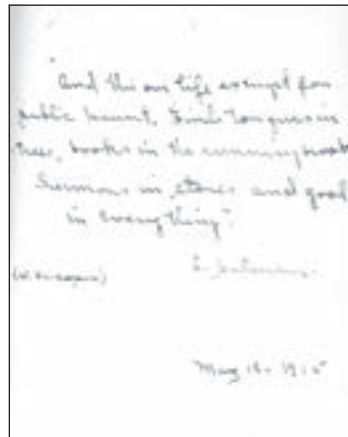 "And this our life exempt from
public haunt, finds tongues in
trees, books in the running brooks
Sermons in stones and good
in everything".
May 18 - 1915